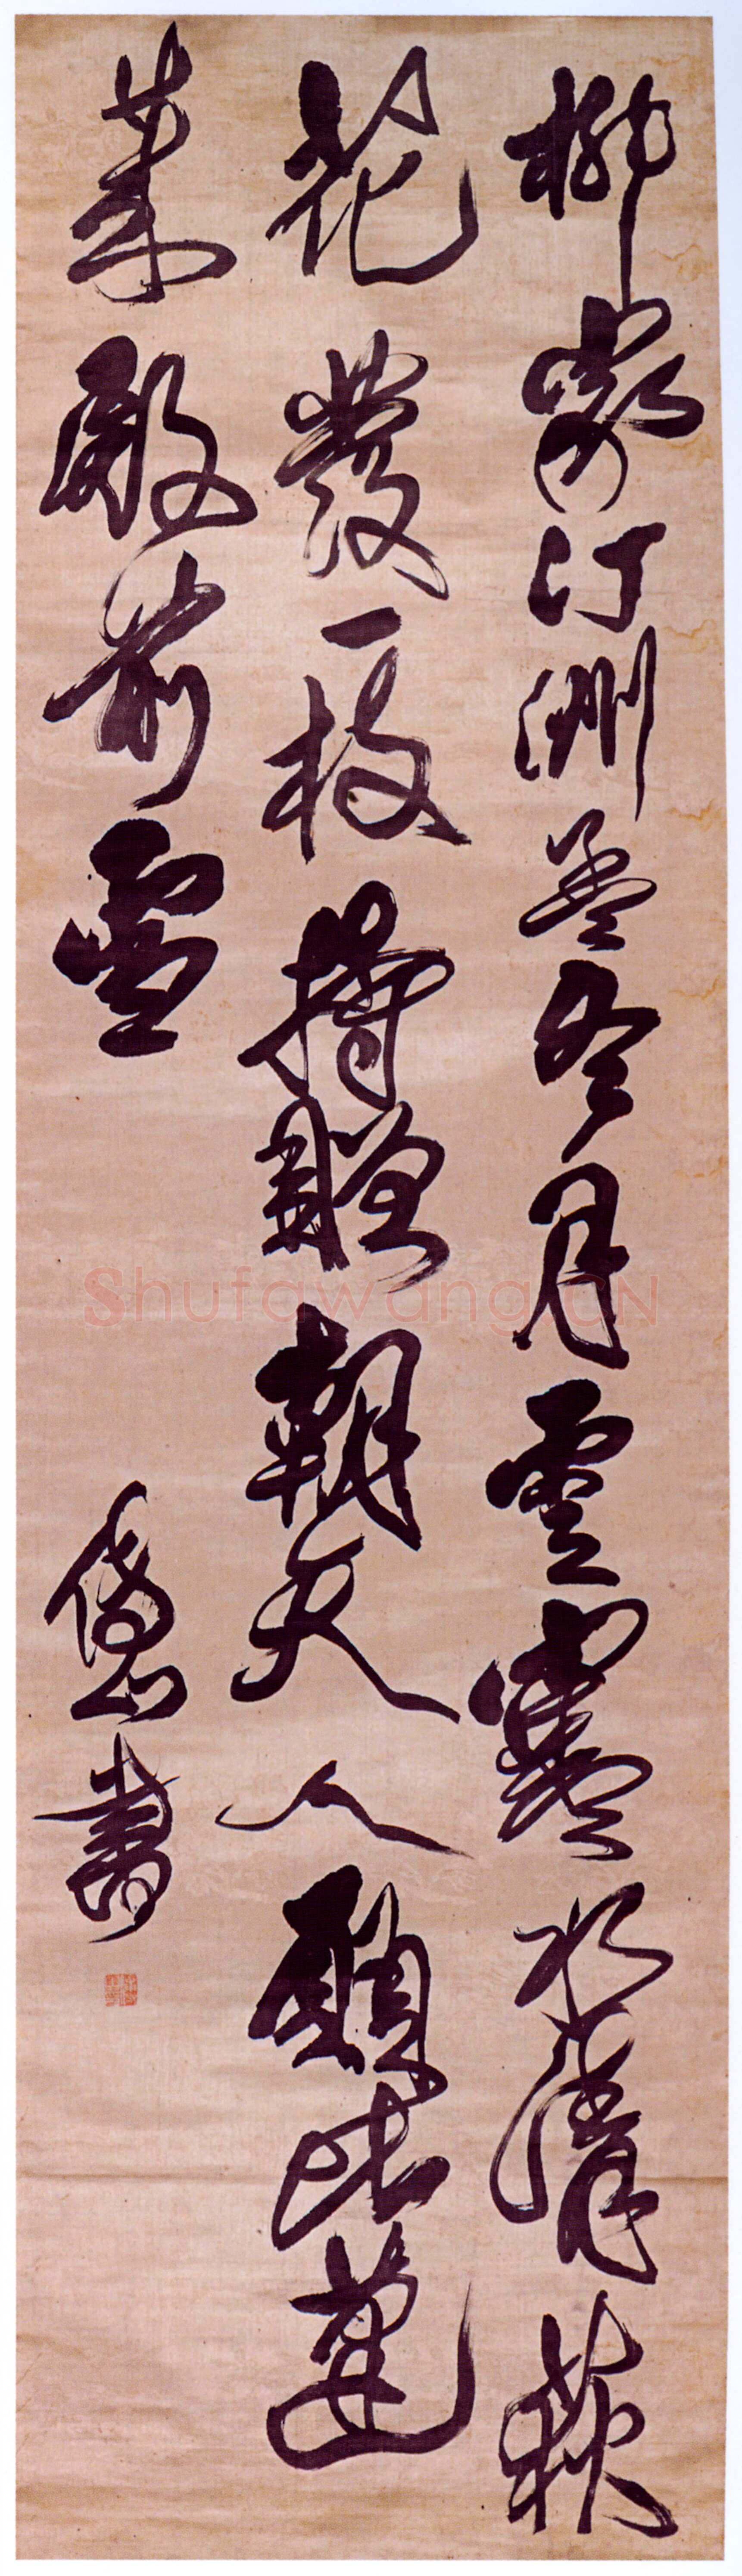 柳家汀洲孟冬月雲寒水清荻
花發一枝持贈朝天人願比蓬
萊殿前雪
岱山書
Shufawang.CN